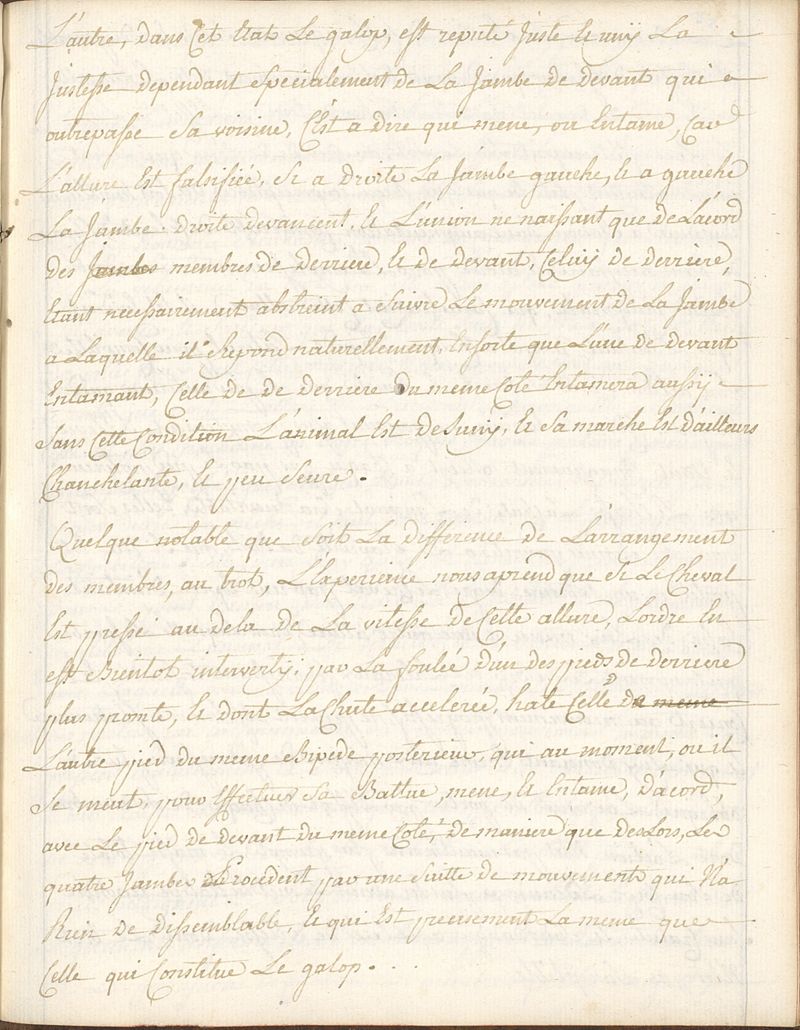 L'autre, dans Cet Etat Le galop, est reputé Juste & uny La
Justesse dependant Specialement de La Jambe de devant qui
outrepasse Sa voisine, C'est a dire qui mene, ou Entame, Car
L'allure Est falsifiée, Si a droite La Jambe gauche, & a gauche
La Jambe droite devancent, & L'union ne naissant que de L'acord
des Jambes membres de derriere, & de devant, Celuy de derriere,
Etant necessairement abstreint a Suivre Le mouvement de La Jambe
a Laquelle il Repond naturellement, Ensorte que L'une de devant
Entamant, Celle de de derriere du meme Coté Entamera aussy
Sans Cette Condition L'animal Est desuny, & Sa marche Est d'ailleurs
Chanchelante, & peu Seure.
Quelque notable que Soit La difference de L'arrangement
des membres, au trot, L'Experience nous aprend que Si Le Cheval
Est pressé au dela de La vitesse de Cette allure, L'ordre En
est Bientot interverty; par La foulée d'un des pieds de derriere
plus promte, & dont La Chute accelerée, hate Celle de meme
L'autre pied du meme Bipede posterieur, qui au moment, ou il
Se meut, pour Effectuer Sa Battue, mene, & Entame, d'acord,
avec Le pied de devant du meme Coté, de maniere que des Lors, Les
quatre Jambes Procedent par une Suitte de mouvements qui N'a
Rien de dissemblable, & qui Est precisement La meme que
Celle qui Constitue Le galop. . .